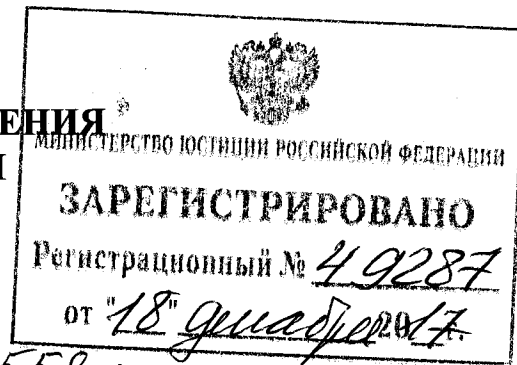 ЕНИЯ
МИНИСТЕРСТВО ЮСТИЦИИ РОССИЙСКОЙ ФЕДЕРАЦИИ
И
ЗАРЕГИСТРИРОВАНО
Регистрационный № 49287
от "18" декабря 2017г.
558